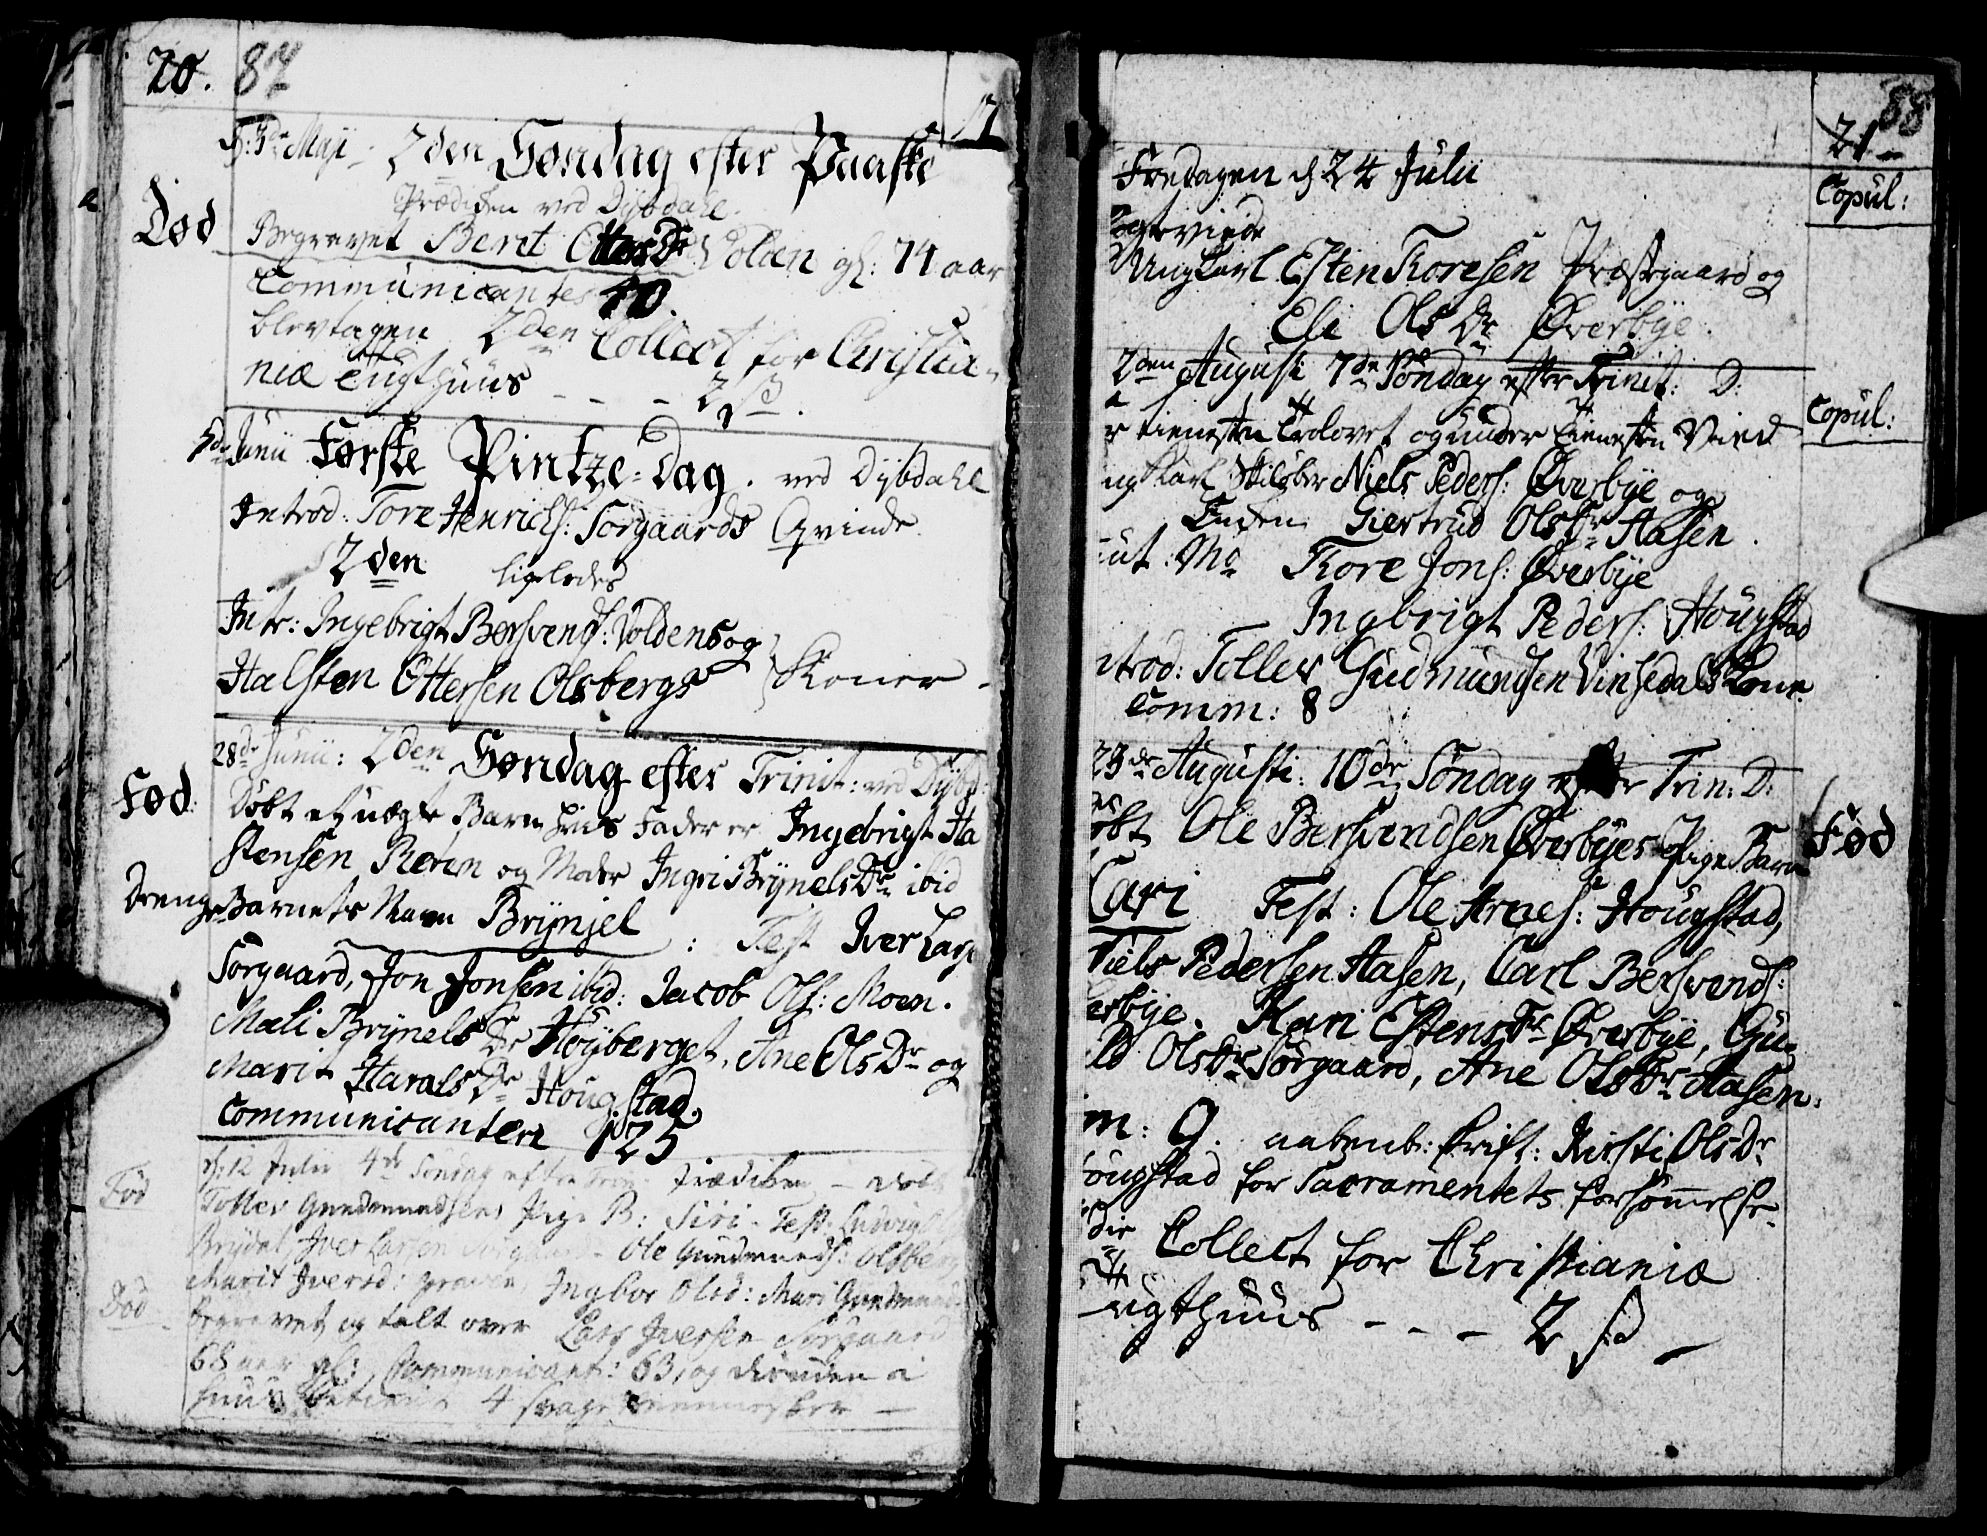 20. 87
17
Maji 2den Søndag efter Paaske
Prædiken ved Dybdahl.
Død
Begravet Berit Otters Dr Volden gl: 74 aar
Communicantes 40.
blev tagen 2den Collect for Christia-
niæ Tugthuus - - - 2 ß.
Junii Første Pintze-Dag. ved Dybdahl
Introd: Tore Henrichs: Sorgaards Qvinde.
2den ligeledes
Intr: Ingebrigt Bersvends: Voldens og
Halsten Ottersen Olsbergs Koner
28de Junii: 2den Søndag efter Trinit: ved Dybd:
Fød
Døbt et uægte Barn hvis Fader er Ingebrigt Ha
stensen Moen og Moder Ingri Brynels Dr ibid
Drenge Barnets Navn Brynjel : Test Iver Lars
Sorgaard, Jon Jonsen ibid: Jacob Ols: Moen.
Mali Brynels Dr Høyberget, Ane Ols Dr og
Marit Harals Dr Hougstad.
Communicanter 125
d. 12 Julii 4de Søndag efter Trin: Prædiken - døbt
Fød
Tolles Gundmundsens Pige B: Siri - Test. Ludvig
Brydal, Iver Larsen Sorgaard - Ole Gundmunds: Olsberg
Marit Iversd: Ingbor Olsd: Mari Gundmunds
Død
begravet og talt over Lars Iversen Sorgaard
68 aar gl: Communicant: 63, og desuden i
huus 4 svage Mennesker -
88
21
Fredagen d 24 Julii
Copul:
egtevied
Ungkarl Esten Toresen Præstgaard og
Eli Ols Dr Øverbye.
2den Augusti 7de Søndag efter Trinit: D:
Copul:
r tienesten trolovet og under tienesten Vied
ng Karl Skiløber Niels Peders: Øverbye og
Enken Giertrud Ols Dr Aasen.
ut: Mo Tore Jons: Øverbye
Ingbrigt Peders: Hougstad
trod: Tolles Gudmundsen Vinsedals Kone
Comm: 8
23de Augusti: 10de Søndag efter Trin: D:
Fød
øbt Ole Bersvendsen Øverbyes Pige Barn
Cari Test: Ole Arnes: Hougstad,
Niels Pedersen Aasen, Carl Bersvends:
erbye. Kari Estens Dr Øverbye, Gu-
ld Ols Dr Sorgaard, Ane Ols Dr Aasen:
m: 9. aabenb: Skrift: Kirsti Ols Dr
ougstad for Sacramentets forsømmelse.
die Collect for Christianiæ
ugthuus - - - 2 ß -